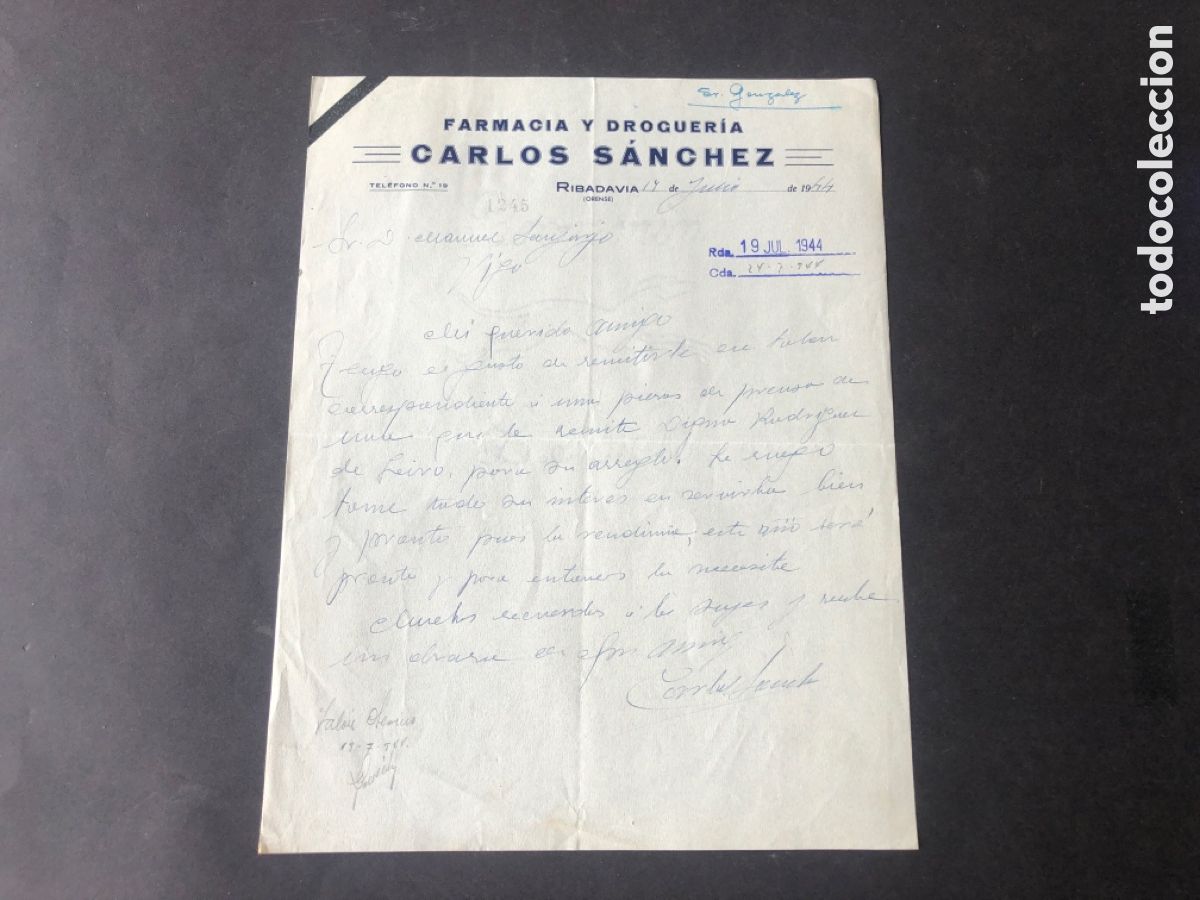 Sr. Gonzalez
FARMACIA Y DROGUERÍA
CARLOS SÁNCHEZ
TELÉFONO N.º 19
RIBADAVIA 17 de Julio de 1944
(ORENSE)
1245
Sr. D. Manuel
Vigo
Rda. 19 JUL. 1944
Cda. 24-7-944
Mi querido amigo
Tengo el gusto de remitirle un talon
correspondiente a unas piezas de prensa de
que le remite Rodriguez
de Leiro, para su arreglo. Le ruego
tome todo su interes en servirla bien
y pronto pues la vendimia, este año será
pronto y para entonces la necesita
Muchos recuerdos a los suyos y reciba
un abrazo de su amigo
Carlos Sanchez
19-7-944.
todocoleccion